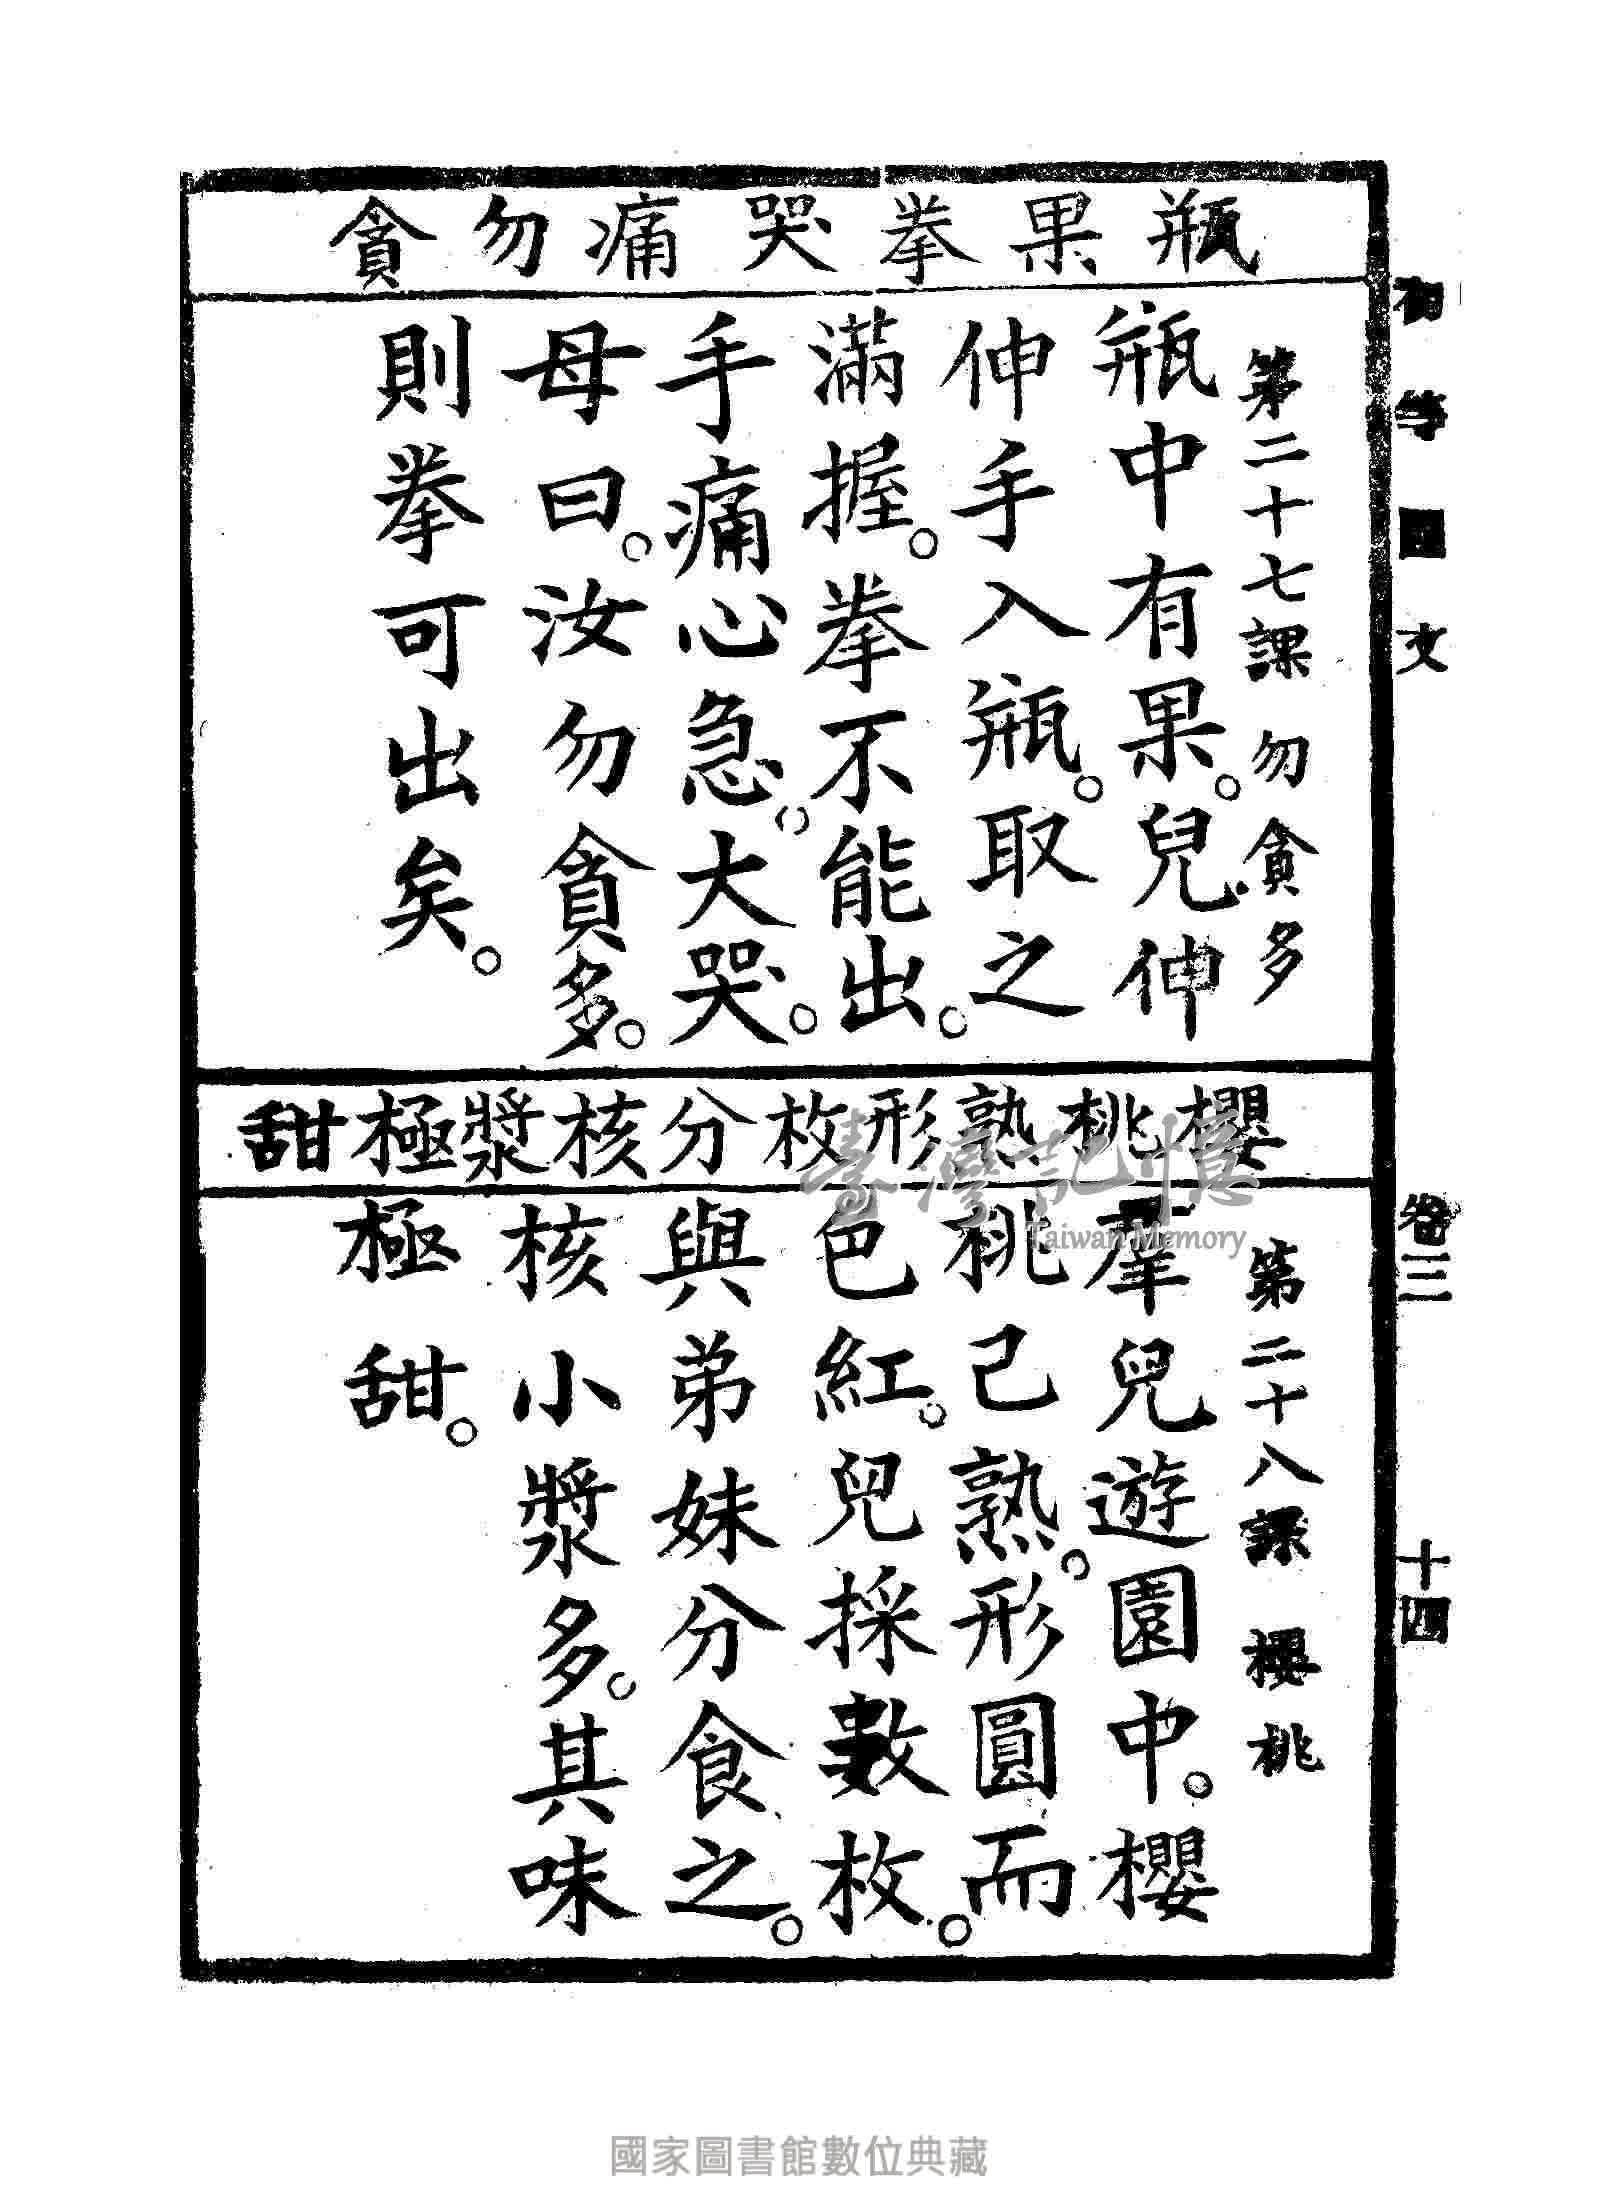 初等國文
卷三
十四
瓶果拳哭痛勿貪
第二十七課 勿貪多
瓶中有果。兒伸
伸手入瓶。取之
滿握。拳不能出。
手痛心急。大哭。
母曰。汝勿貪多。
則拳可出矣。
櫻桃熟形枚分核漿極甜
第二十八課 櫻桃
羣兒遊園中。櫻
桃已熟。形圓而
色紅。兒採數枚。
與弟妹分食之。
核小漿多。其味
極甜。
臺灣記憶
Taiwan Memory
國家圖書館數位典藏